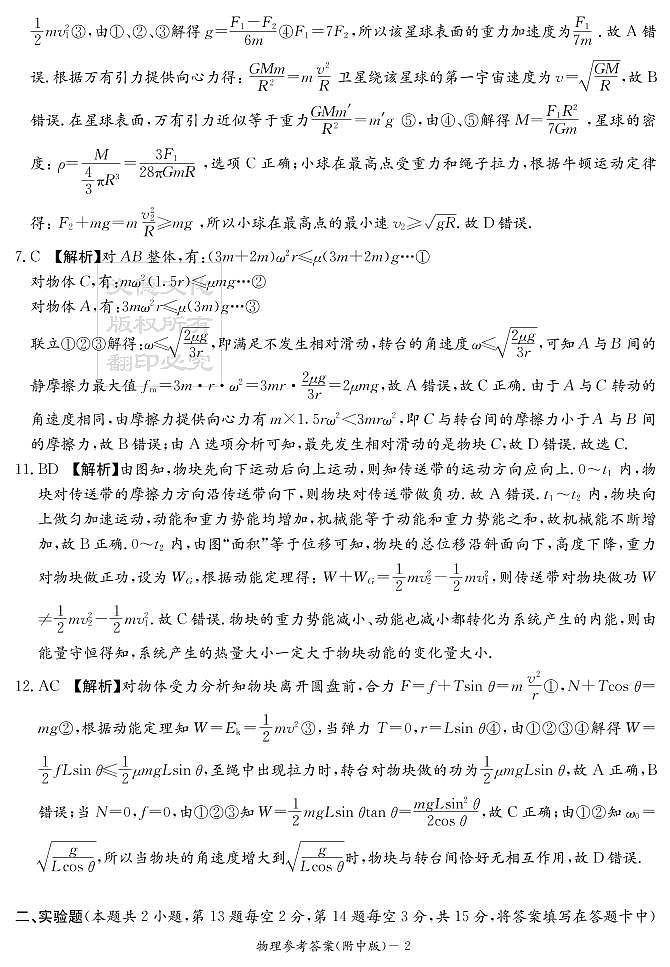 1/2 mv₁²③,由①、②、③解得 g=(F₁−F₂)/6m ④F₁=7F₂,所以该星球表面的重力加速度为F₁/7m.故 A 错
误.根据万有引力提供向心力得:GMm/R²=m v²/R 卫星绕该星球的第一宇宙速度为 v=√(GM/R),故 B
错误.在星球表面,万有引力近似等于重力GMm′/R²=m′g ⑤,由④、⑤解得 M=F₁R²/7Gm,星球的密
度:ρ=M/(4/3 πR³)=3F₁/28πGmR,选项 C 正确;小球在最高点受重力和绳子拉力,根据牛顿运动定律
得:F₂+mg=m v₂²/R⩾mg,所以小球在最高点的最小速 v₂⩾√gR.故 D 错误.
7.C 【解析】对 AB 整体,有:(3m+2m)ω²r⩽μ(3m+2m)g…①
对物体 C,有:mω²(1.5r)⩽μmg…②
对物体 A,有:3mω²r⩽μ(3m)g…③
版权所有
联立①②③解得:ω⩽√(2μg/3r),即满足不发生相对滑动,转台的角速度 ω⩽√(2μg/3r),可知 A 与 B 间的
翻印必究
静摩擦力最大值 fₘ=3m·r·ω²=3mr·2μg/3r=2μmg,故 A 错误,故 C 正确.由于 A 与 C 转动的
角速度相同,由摩擦力提供向心力有 m×1.5rω²<3mrω²,即 C 与转台间的摩擦力小于 A 与 B 间
的摩擦力,故 B 错误;由 A 选项分析可知,最先发生相对滑动的是物块 C,故 D 错误.故选 C.
11.BD 【解析】由图知,物块先向下运动后向上运动,则知传送带的运动方向应向上.0～t₁ 内,物
块对传送带的摩擦力方向沿传送带向下,则物块对传送带做负功.故 A 错误.t₁～t₂ 内,物块向
上做匀加速运动,动能和重力势能均增加,机械能等于动能和重力势能之和,故机械能不断增
加,故 B 正确.0～t₂ 内,由图“面积”等于位移可知,物块的总位移沿斜面向下,高度下降,重力
对物块做正功,设为 W_G,根据动能定理得:W+W_G=1/2 mv₂²−1/2 mv₁²,则传送带对物块做功 W
≠1/2 mv₂²−1/2 mv₁².故 C 错误.物块的重力势能减小、动能也减小都转化为系统产生的内能,则由
能量守恒得知,系统产生的热量大小一定大于物块动能的变化量大小.
12.AC 【解析】对物体受力分析知物块离开圆盘前,合力 F=f+Tsin θ=m v²/r①,N+Tcos θ=
mg②,根据动能定理知 W=Eₖ=1/2 mv²③,当弹力 T=0,r=Lsin θ④,由①②③④解得 W=
1/2 fLsin θ⩽1/2 μmgLsin θ,至绳中出现拉力时,转台对物块做的功为1/2 μmgLsin θ,故 A 正确,B
错误;当 N=0,f=0,由①②③知 W=1/2 mgLsin θtan θ=mgLsin² θ/2cos θ,故 C 正确;由①②知 ω₀=
√(g/Lcos θ),所以当物块的角速度增大到√(g/Lcos θ)时,物块与转台间恰好无相互作用,故 D 错误.
二、实验题(本题共 2 小题,第 13 题每空 2 分,第 14 题每空 3 分,共 15 分,将答案填写在答题卡中)
物理参考答案(附中版)－2